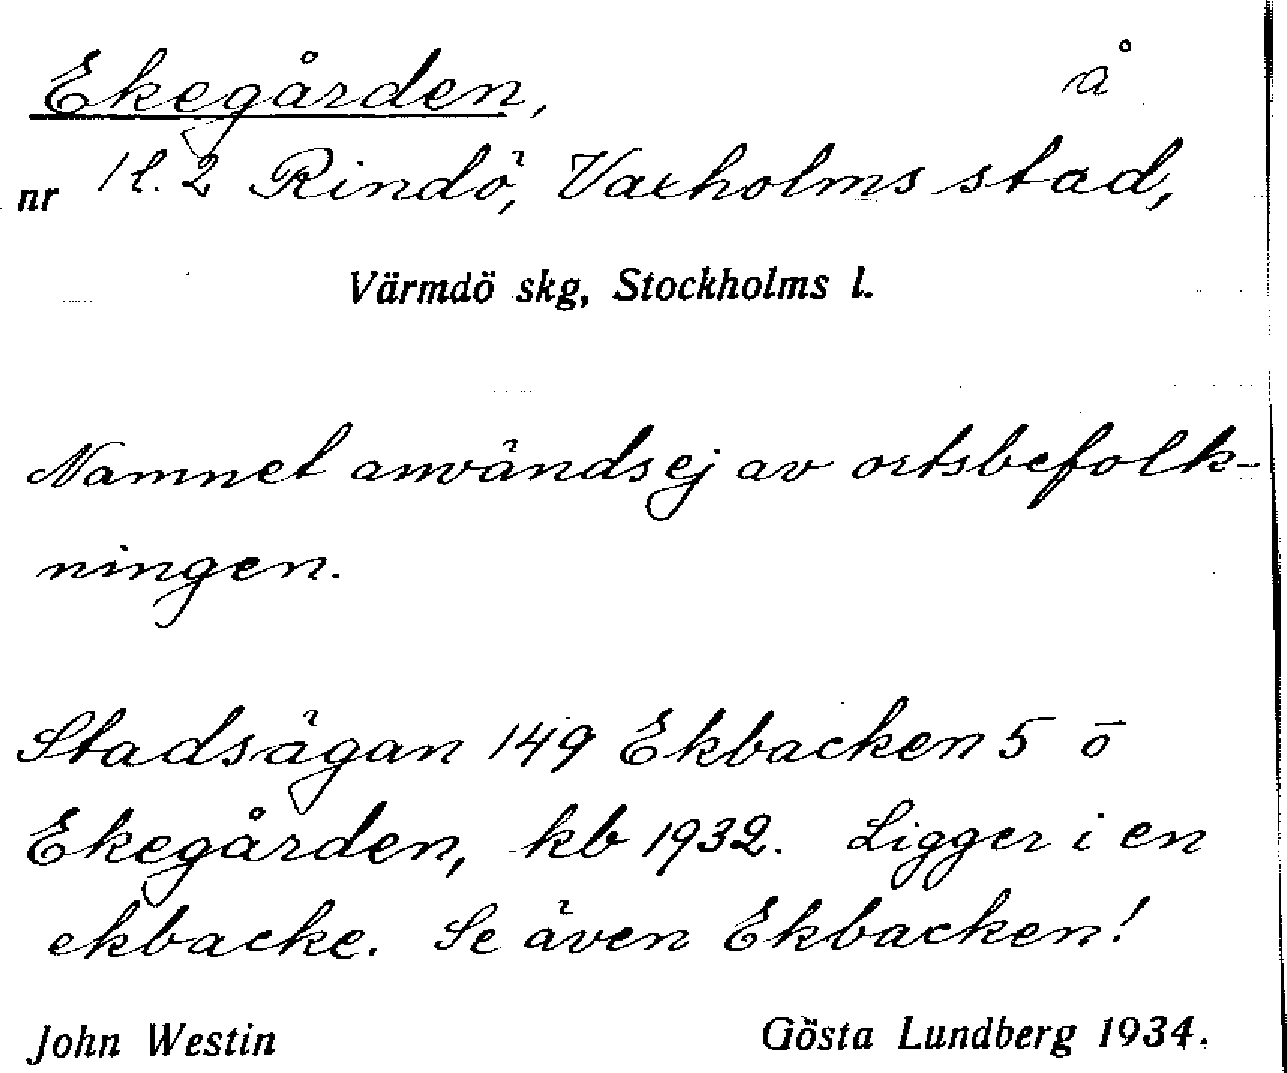 Ekegården, å
nr 1 l. 2 Rindö, Vaxholms stad,
Värmdö skg, Stockholms l.
Namnet användsej av ortsbefolk-
ningen.
Stadsägan 149 Ekbacken 5 o
Ekegården, kb 1932. Ligger i en
ekbacke. Se även Ekbacken!
John Westin Gösta Lundberg 1934.